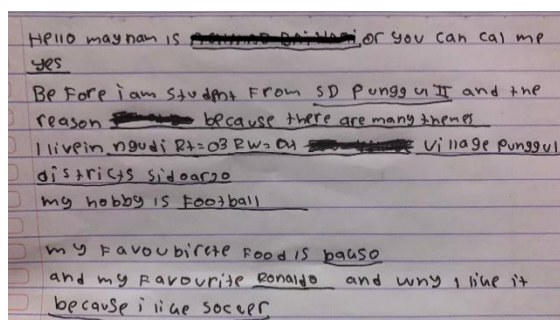 Hello may nam is or you can cal me
yes
Be Fore i am Student From SD Punggul II and the
reason because there are many themes
I livein ngudi Rt=03 RW=01 village punggul
districts Sidoarzo
my hobby is Football
my Favoubirete Food is bauso
and my Favourite Ronaldo and why i like it
because i like soccer